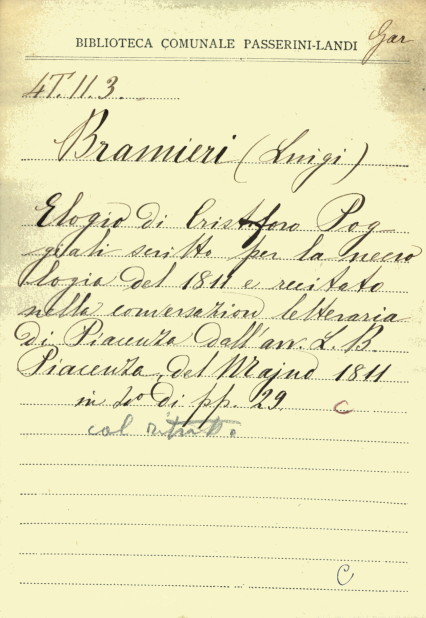 Gar
BIBLIOTECA COMUNALE PASSERINI-LANDI
4T.11.3.
Bramieri (Luigi)
Elogio di Cristoforo Pog
giali scritto per la necro
logia del 1811 e recitato
nella conversazion letteraria
di Piacenza dall'avv. L. B.
Piacenza, del Majno 1811
in 4º di pp. 29. C
col ritratto.
C